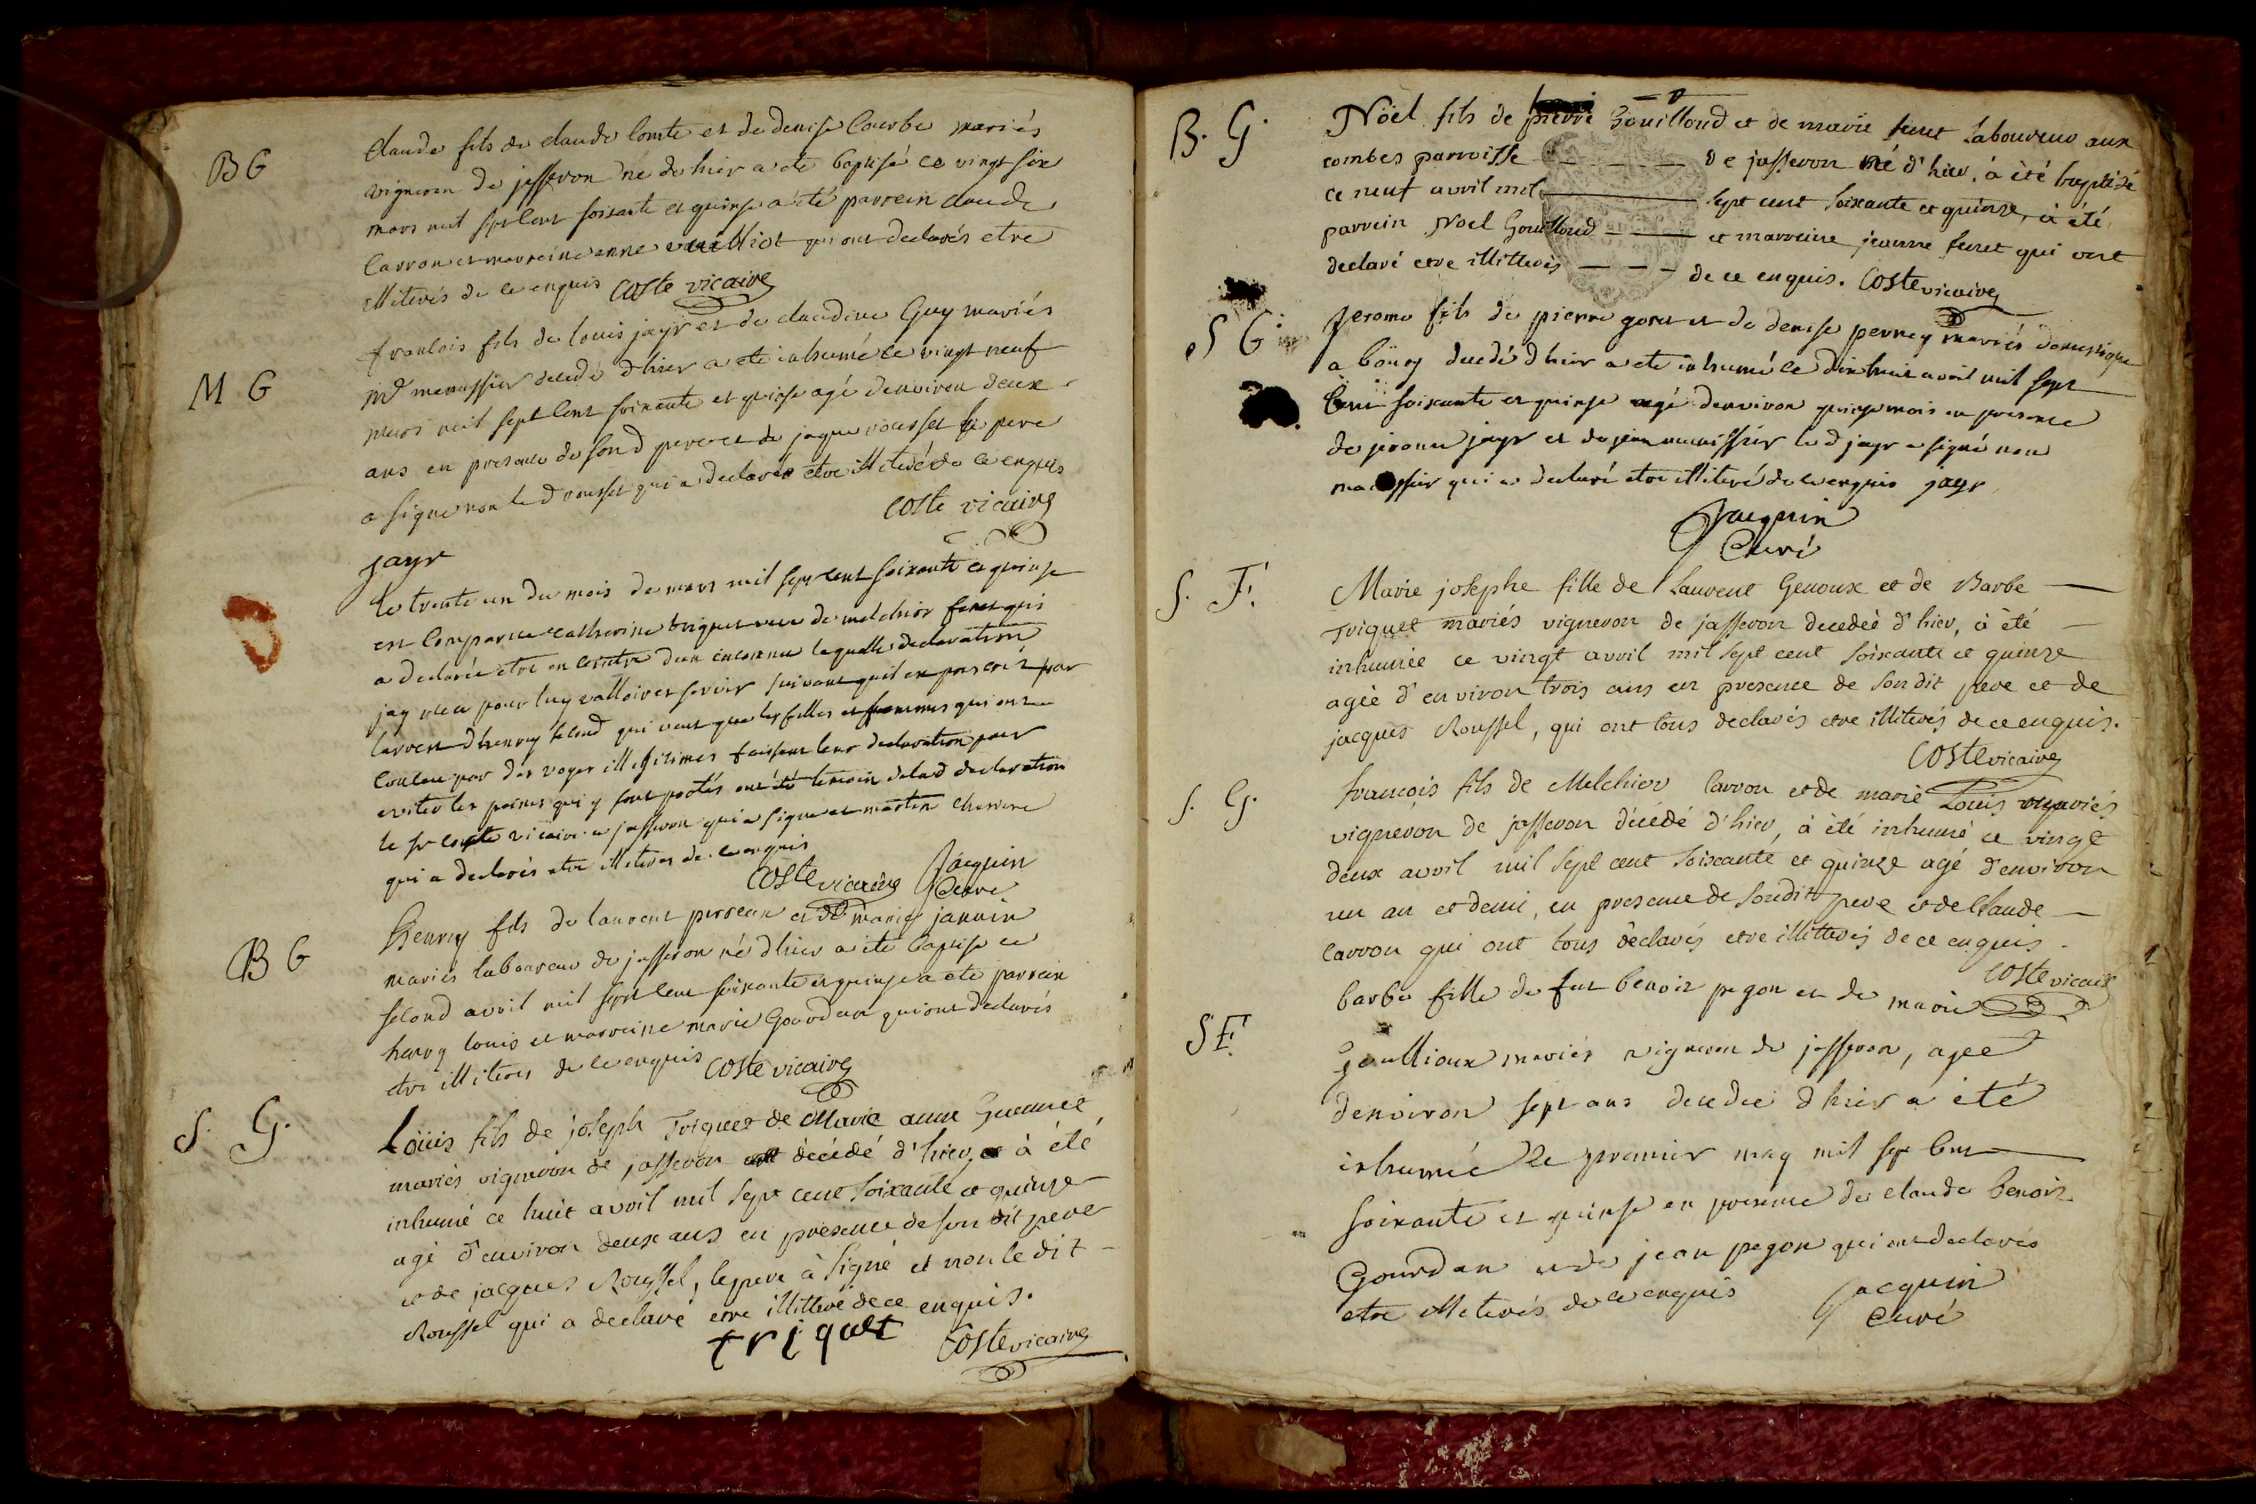 B G
Claude fils de claude Comte et de denise Courbe mariés
vigneron de jasseron né de hier a ete baptisé ce vingt six
mars mil sept cent soisante et quinse a été parrein claude
Carron et marreine anne vuilliot qui ont declarés etre
illiterés de ce enquis Coste vicaire
M G
francois fils de louis jayr et de claudine Guy mariés
md menussier decedé d'hier a ete inhumé ce vingt neuf
mars mil sept cent soixante et quinse agé d'environ deux
ans en presence de son d pere et de jaque rousset le pere
a signe non le d rousset qui a declaré etre illiteré de ce enquis
Coste vicaire
jayr
le trente un du mois de mars mil sept cent soixante et quinse
est Comparue catherine triquet veuve de melchior feret qui
a declarée etre enceinte d'un inconnu laquelle declaration
jay recu pour luy valloir et servir suivant qu'il est prescrit par
l'arrest d'henry second qui veut que les filles et femmes qui ont
Conceu par des voyes illegitimes fassent leur declaration pour
eviter les peines qui y sont portés ont été temoin de lad declaration
le sr coste vicaire a jasseron qui a signe et martin chesne
qui a declarés etre illiteres de ce enquis
Coste vicaire Jacquin
Curé
B G
henry fils de laurent perreau et de marie janvin
mariés laboureur de jasseron né d'hier a ete baptise ce
second avril mil sept cent soixante et quinse a ete parrein
henry louis et marreine marie Gourdan qui ont declarés
etre illiteres de ce enquis Coste vicaire
S. G.
Loüis fils de joseph Triquet de Marie anne Guenne
mariés vigneron de jasseron décédé d'hier, à été
inhumé ce huit avril mil sept cent soixante et quinze
agé d'environ deux ans en présence de son dit pere
et de jacques Roussel, le pere à signé et non le dit
Roussel qui a declaré etre illitteré de ce enquis.
triquet Coste vicaire
B. G.
Nöel fils de pierre Gouilloud et de marie feret laboureur aux
combes parroisse de jasseron né d'hier, à été baptisé
ce neuf avril mil sept cent soixante et quinze, à été
parrein Noel Gouilloud et marreine jeanne feret qui ont
declaré etre illitterés de ce enquis. Coste vicaire
S G
Jerome fils de pierre goret et de denise perney mariés domestique
a bourg decedé d'hier a ete inhumé ce dix huit avril mil sept
Cent soixante et quinse agé d'environ quinse mois en presence
de jerome jayr et de jean menissier le d jayr a signé non
menissier qui a declaré etre illiteré de ce enquis jayr
Jacquin
Curé
S. F.
Marie josephe fille de Laurent Genoux et de Barbe
Triquet mariés vigneron de jasseron decedée d'hier, à été
inhumée ce vingt avril mil sept cent soixante et quinze
agée d'environ trois ans en presence de son dit pere et de
jacques Roussel, qui ont tous declarés etre illiterés de ce enquis.
Coste vicaire
S. G.
françois fils de Melchior Carron et de marie Louis mariés
vigneron de jasseron décédé d'hier, à été inhumé ce vingt
deux avril mil sept cent soixante et quinze agé d'environ
un an et demi, en presence de son dit pere et de Claude
Carron qui ont tous déclarés etre illitterés de ce enquis.
Coste vicaire
S F.
barbe fille de feu benoit pegon et de marie
Goullioux mariés vigneron de jasseron, agee
d'environ sept ans decedee d'hier a été
inhumée le premier may mil sept cent
soixante et quinse en presence de claude benoit
Gourdan et de jean pegon qui ont declarés
etre illiterés de ce enquis Jacquin
Curé